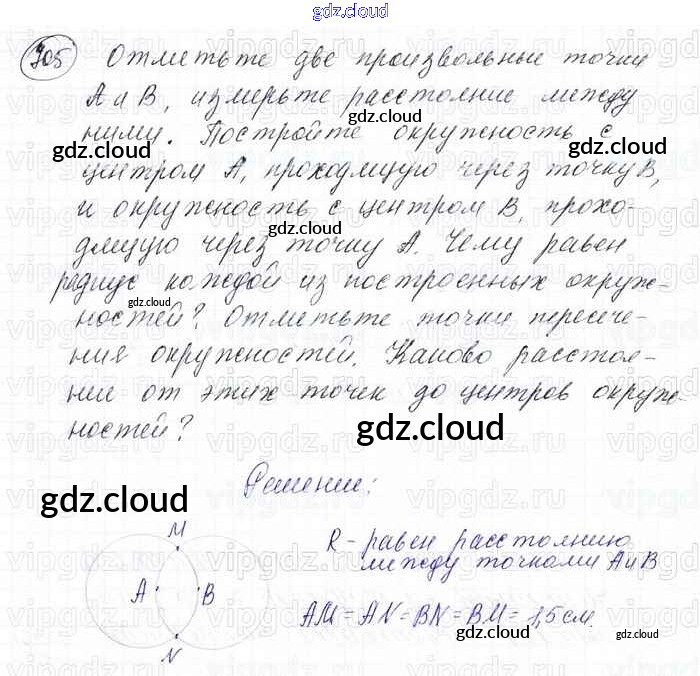 gdz.cloud
705 Отметьте две произвольные точки
А и В, измерьте расстояние между
ними. Постройте окружность с
gdz.cloud
gdz.cloud
gdz.cloud
центром А, проходящую через точку В,
и окружность с центром В, прохо-
gdz.cloud
дящую через точку А. Чему равен
радиус каждой из построенных окруж-
gdz.cloud
ностей? Отметьте точки пересече-
ния окружностей. Каково расстоя-
ние от этих точек до центров окруж-
ностей?
gdz.cloud
Решение:
gdz.cloud
M
R - равен расстоянию
между точками А и В
A
B
AM = AN = BN = BM = 1,5 см.
N
gdz.cloud
gdz.cloud